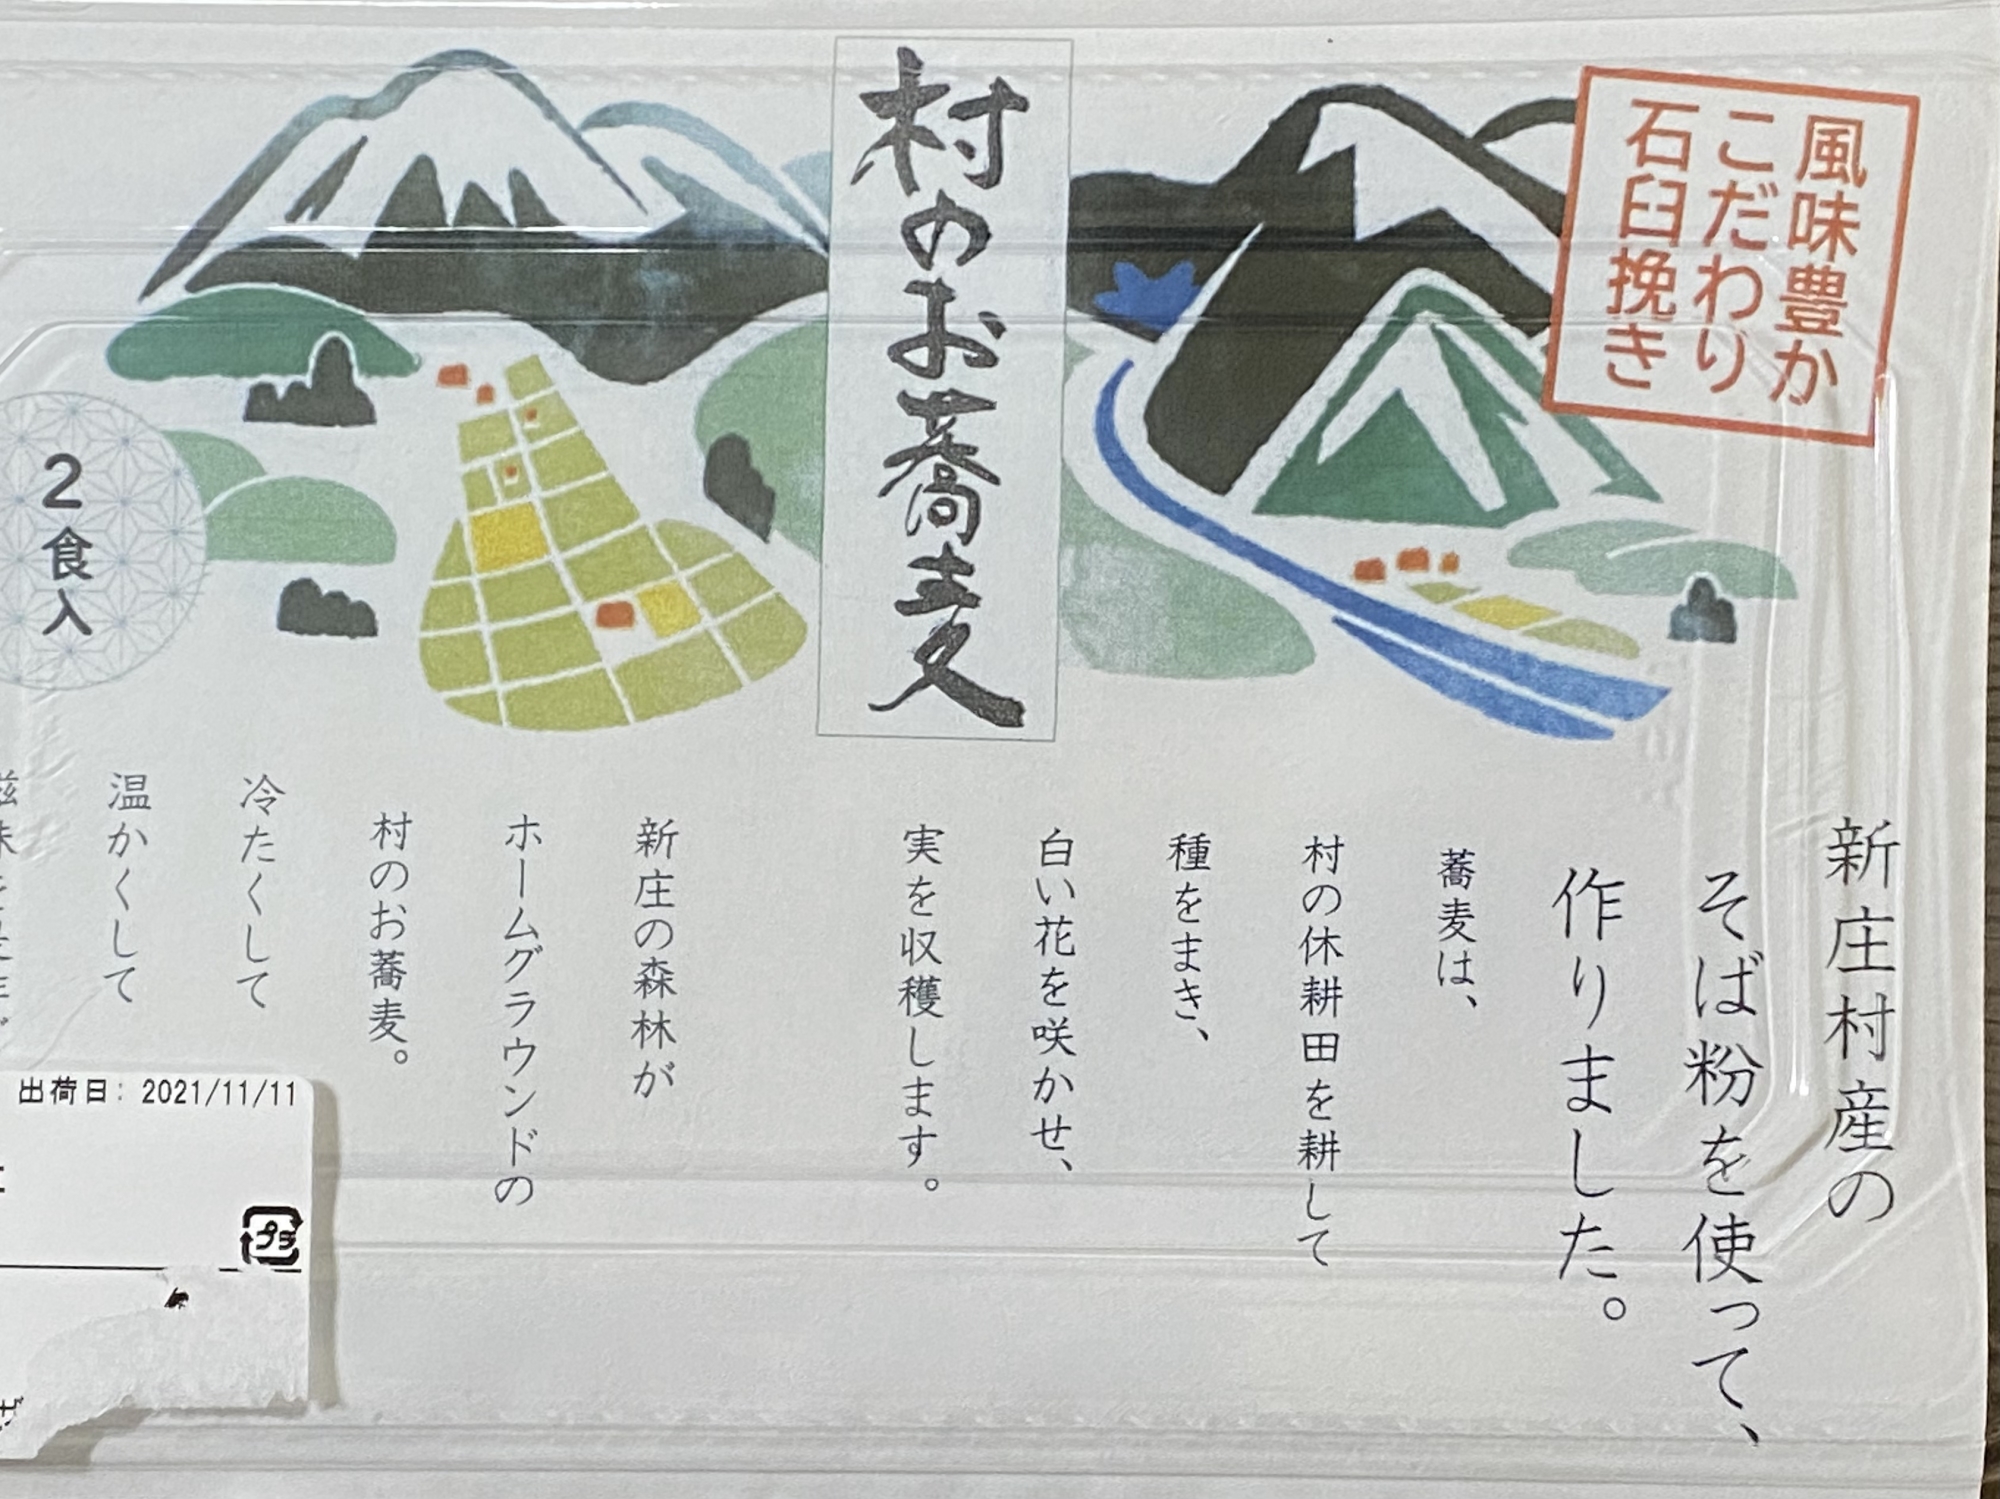 風味豊か
こだわり
石臼挽き
村のお蕎麦
2食入
新庄村産の
そば粉を使って、
作りました。
蕎麦は、
村の休耕田を耕して
種をまき、
白い花を咲かせ、
実を収穫します。
新庄の森林が
ホームグラウンドの
村のお蕎麦。
冷たくして
温かくして
出荷日: 2021/11/11
プラ